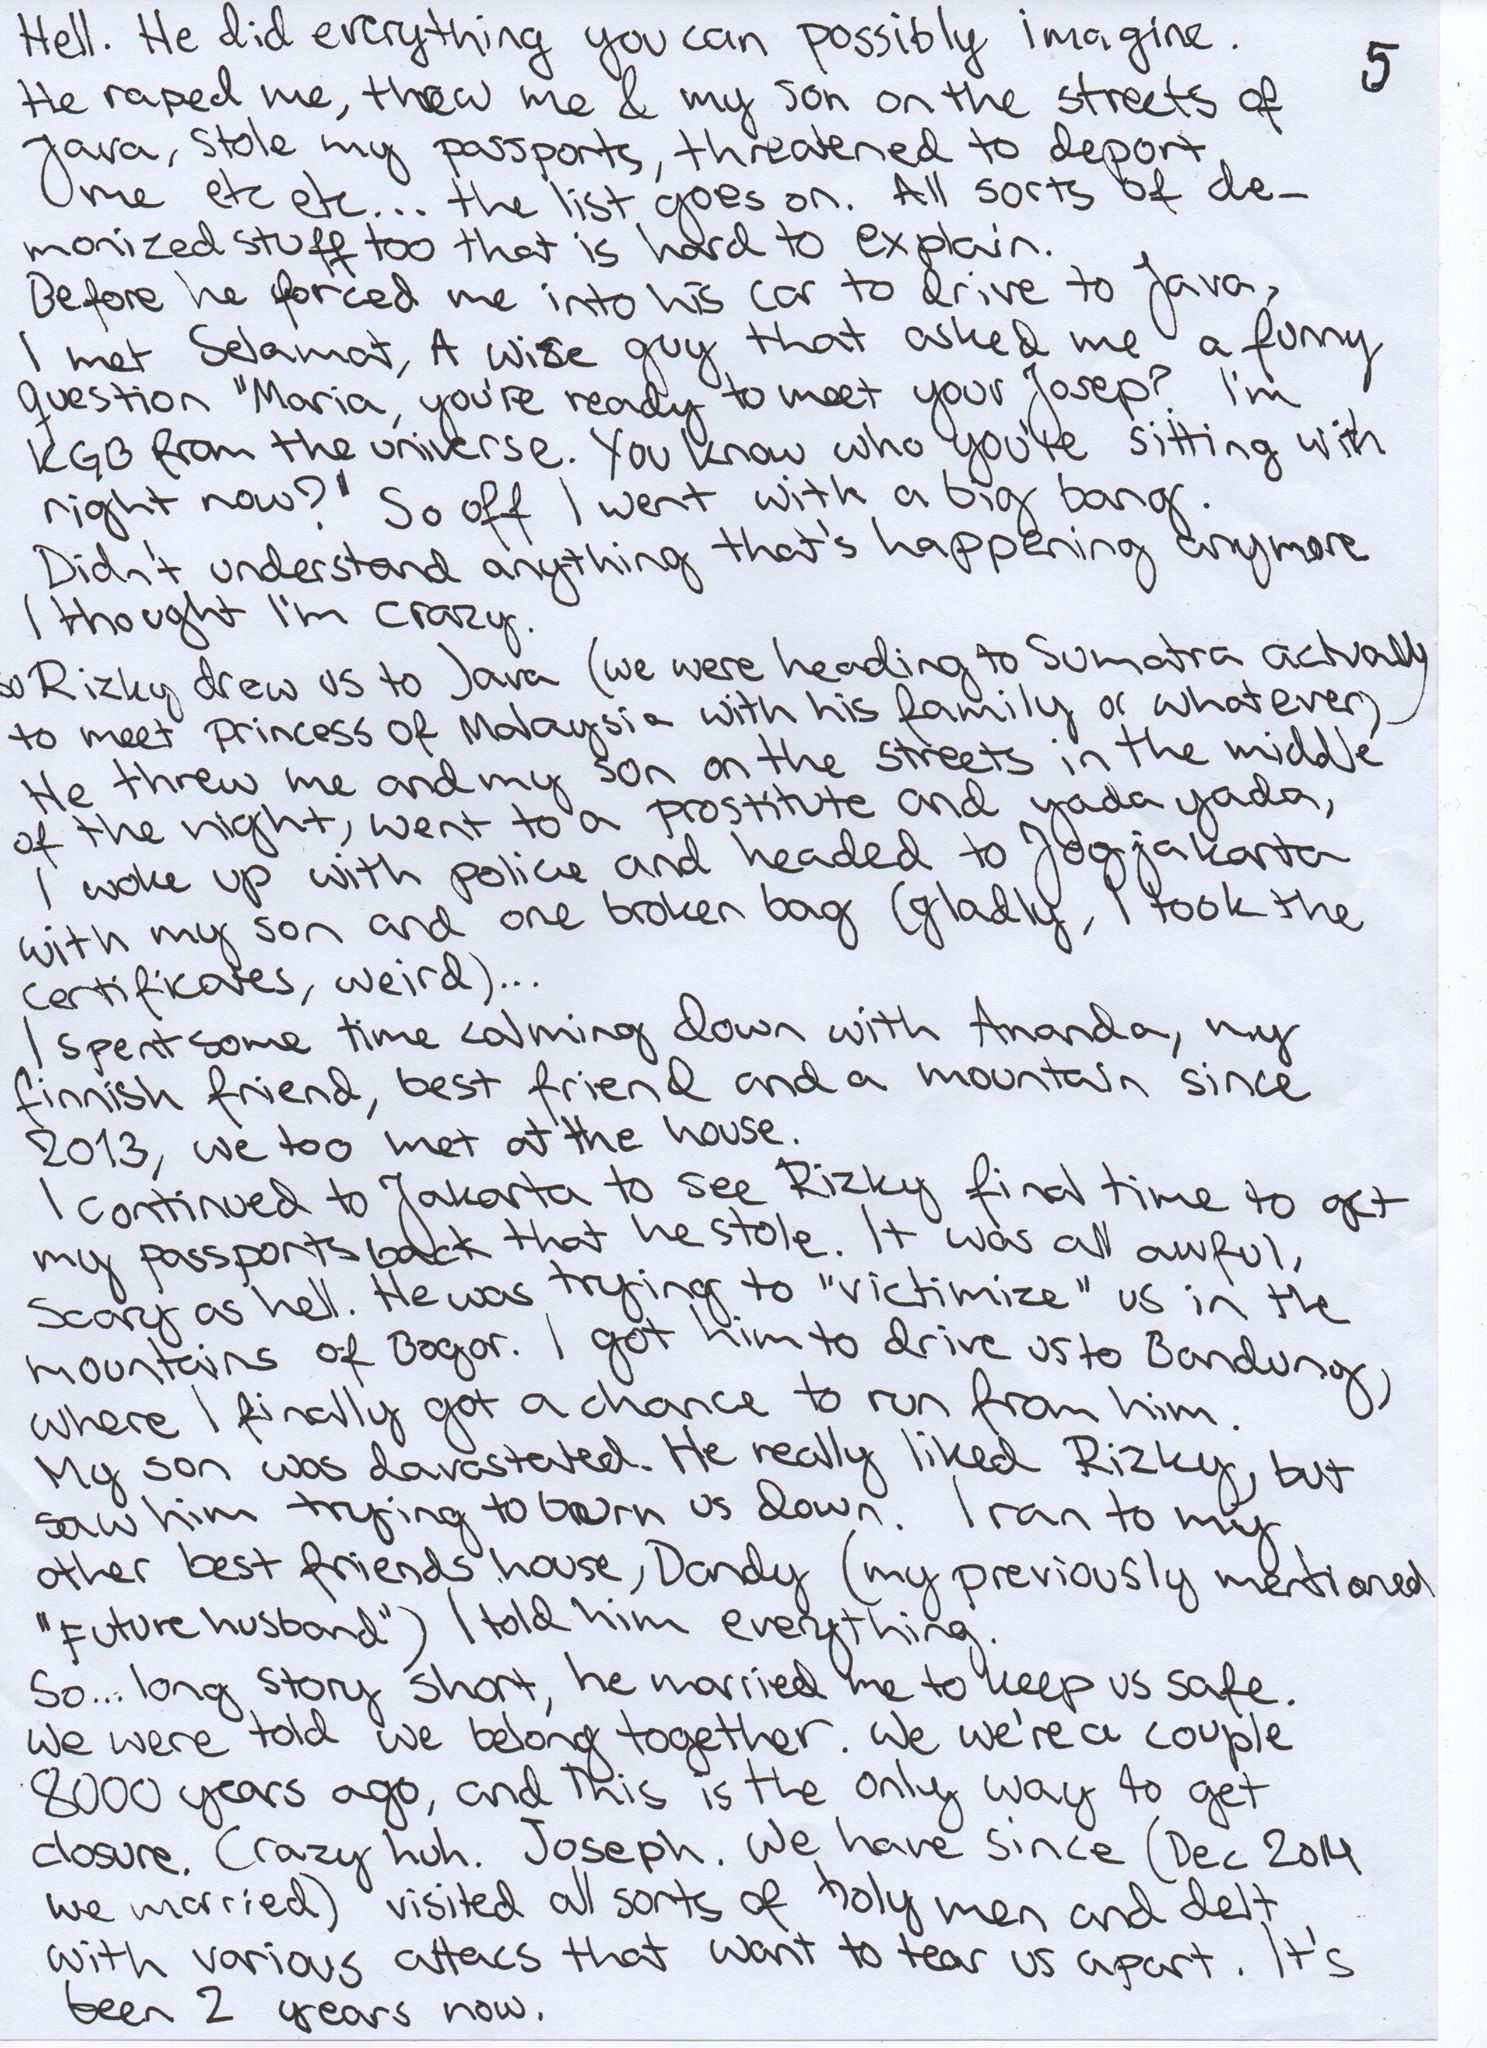 Hell. He did everything you can possibly imagine.
5
He raped me, threw me & my son on the streets of
Java, stole my passports, threatened to deport
me etc etc... the list goes on. All sorts of de-
monized stuff too that is hard to explain.
Before he forced me into his car to drive to Java,
I met Selamat, A wise guy that asked me a funny
question "Maria, you're ready to meet your Josep? I'm
KGB from the universe. You know who you're sitting with
right now?" So off I went with a big bang.
Didn't understand anything that's happening anymore
I thought I'm crazy.
so Rizky drew us to Java (we were heading to Sumatra actually
to meet princess of Malaysia with his family or whatever)
He threw me and my son on the streets in the middle
of the night, went to a prostitute and yada yada,
I woke up with police and headed to Jogjakarta
with my son and one broken bag (gladly, I took the
certificates, weird)...
I spent some time calming down with Ananda, my
finnish friend, best friend and a mountain since
2013, we too met at the house.
I continued to Jakarta to see Rizky final time to get
my passports back that he stole. It was all awful,
Scary as hell. He was trying to "victimize" us in the
mountains of Bogor. I got him to drive us to Bandung,
where I finally got a chance to run from him.
My son was davastated. He really liked Rizky, but
saw him trying to burn us down. I ran to my
other best friends house, Dandy (my previously mentioned
"Future husband") I told him everything.
So... long story short, he married me to keep us safe.
We were told we belong together. We we're a couple
8000 years ago, and this is the only way to get
closure. Crazy huh. Joseph. We have since (Dec 2014
we married) visited all sorts of holy men and delt
with various attacs that want to tear us apart. It's
been 2 years now.